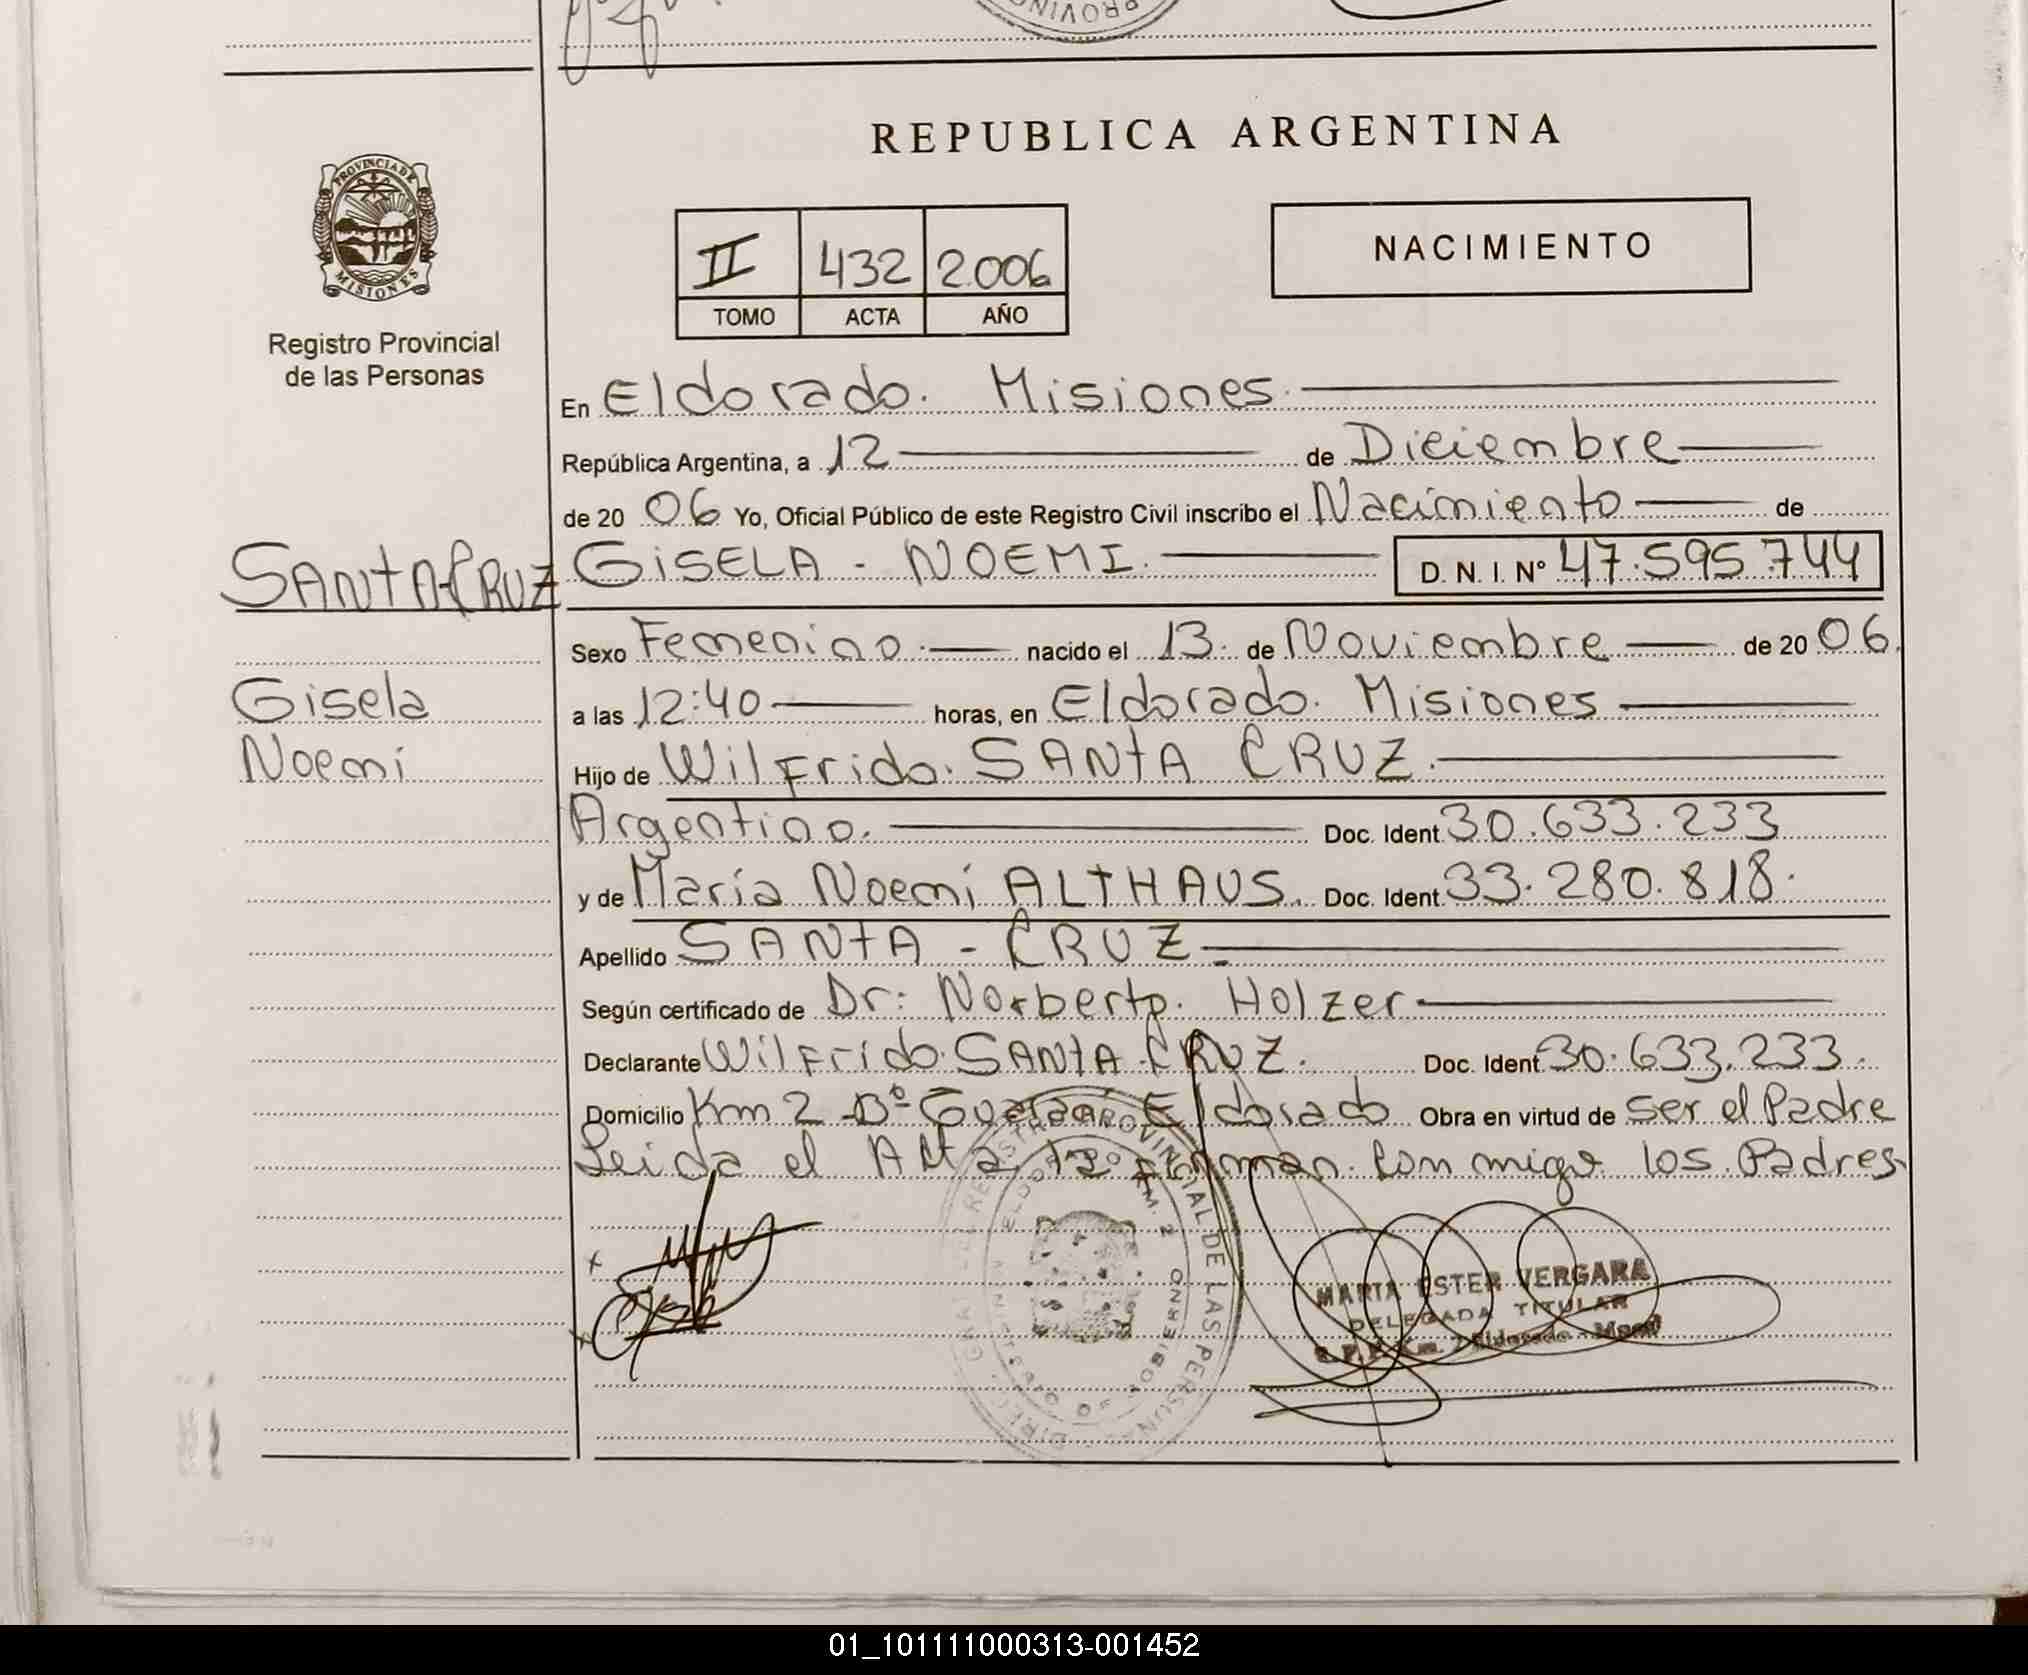 REPUBLICA ARGENTINA
PROVINCIA DE MISIONES
Registro Provincial
de las Personas
II 432 2006
TOMO ACTA AÑO
NACIMIENTO
En Eldorado. Misiones
República Argentina, a 12 de Diciembre
de 20 06 Yo, Oficial Público de este Registro Civil inscribo el Nacimiento de
SANTA-CRUZ GISELA - NOEMI. D. N. I. Nº 47.595.744
Sexo Femenino nacido el 13. de Noviembre de 20 06.
Gisela
Noemí
a las 12:40 horas, en Eldorado. Misiones
Hijo de Wilfrido. SANTA CRUZ.
Argentino. Doc. Ident. 30.633.233
y de María Noemí ALTHAUS. Doc. Ident. 33.280.818.
Apellido SANTA - CRUZ
Según certificado de Dr: Norberto. Holzer
Declarante Wilfrido. SANTA-CRUZ. Doc. Ident. 30.633.233.
Domicilio Km 2 Bº Guaraní Eldorado Obra en virtud de Ser el Padre
Leida el Acta la firman Conmigo los Padres
REGISTRO PROVINCIAL DE LAS PERSONAS
ELDORADO KM. 2
GOBIERNO
MARIA ESTER VERGARA
DELEGADA TITULAR
01_101111000313-001452